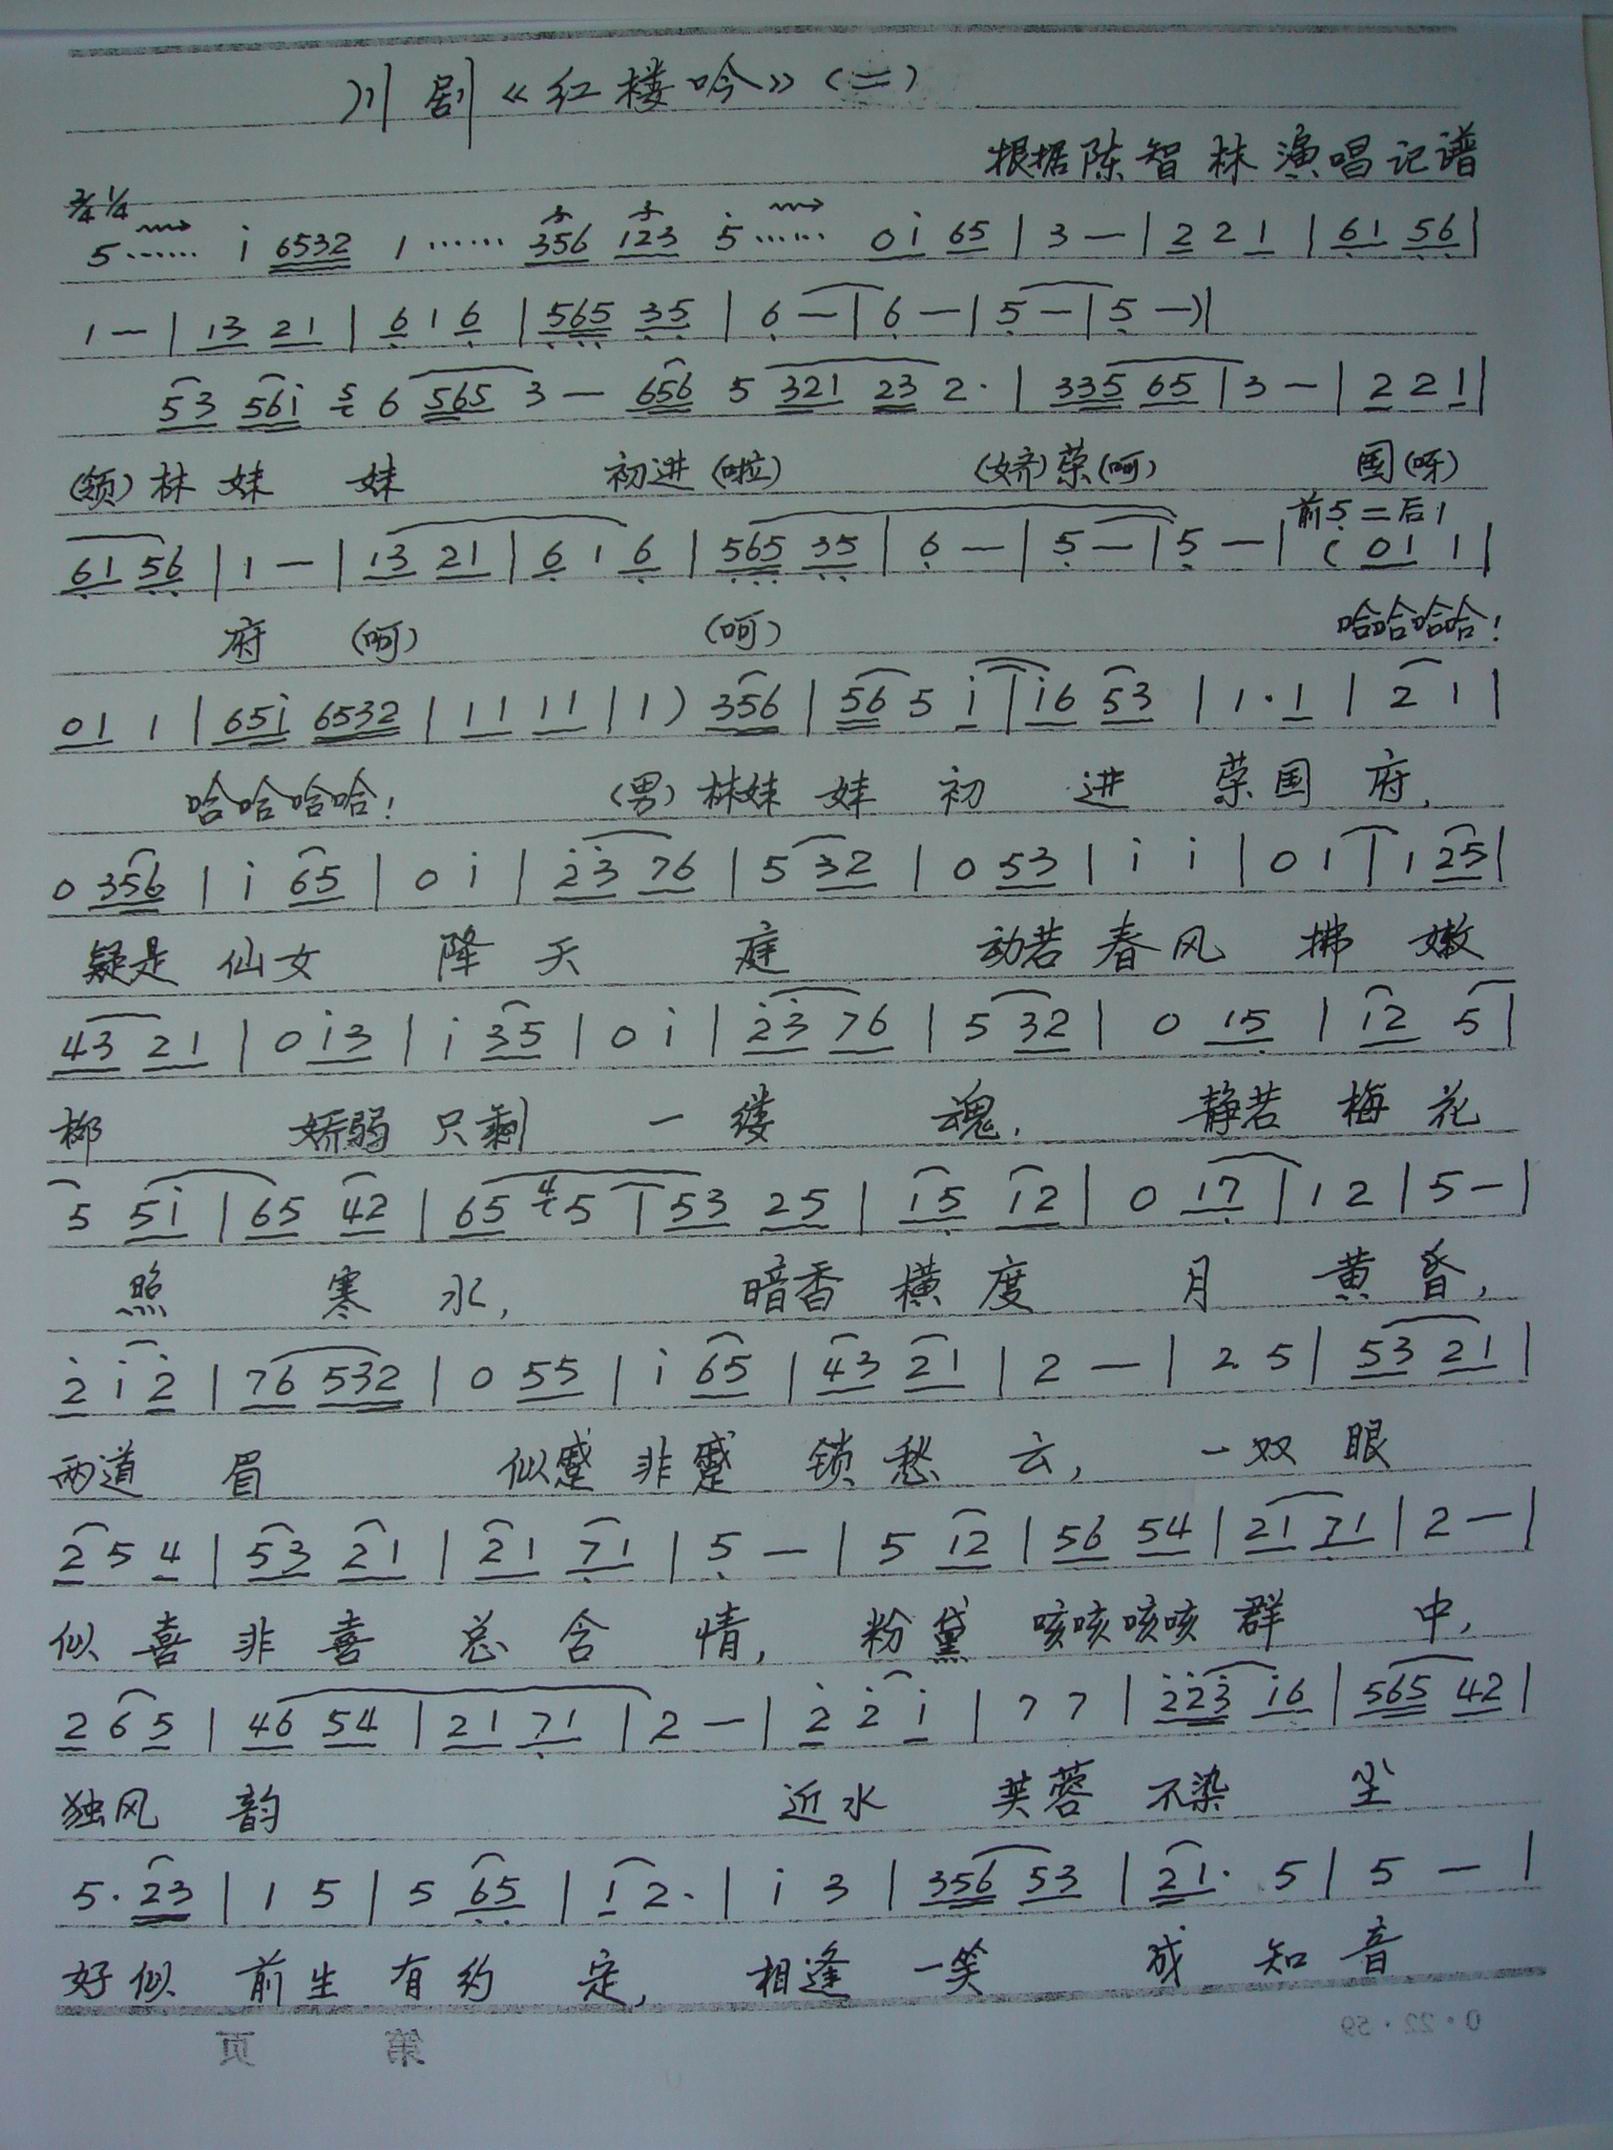 川剧《红楼吟》(二)
根据陈智林演唱记谱
2/4 1/4
5…… i 6532 1…… 356 123 5…… 0i 65 | 3 — | 2 2 1 | 61 56 |
1 — | 13 21 | 6 1 6 | 565 35 | 6 — | 6 — | 5 — | 5 —)|
53 56i 5 6 565 3 — 656 5 321 23 2· | 335 65 | 3 — | 2 2 1 |
(领)林妹 妹 初进(啦) (娇)荣(呵) 国(呀)
前5=后1
61 56 | 1 — | 13 21 | 6 1 6 | 565 35 | 6 — | 5 — | 5 — | (01 1 |
府 (呵) (呵) 哈哈哈哈!
01 1 | 65i 6532 | 11 11 | 1) 356 | 56 5 i | i6 53 | 1·1 | 2 1 |
哈哈哈哈! (男)林妹妹 初 进 荣国府,
0 356 | i 65 | 0 i | 23 76 | 5 32 | 0 53 | i i | 0 1 | 1 25 |
疑是 仙女 降天 庭 动若春风 拂 嫩
43 21 | 0 i3 | i 35 | 0 i | 23 76 | 5 32 | 0 15 | 12 5 |
柳 娇弱只剩 一缕 魂, 静若梅花
5 5i | 65 42 | 65 4 5 | 53 25 | 15 12 | 0 17 | 1 2 | 5 — |
照 寒 水, 暗香横度 月 黄昏,
2 i 2 | 76 532 | 0 55 | i 65 | 43 21 | 2 — | 2 5 | 53 21 |
两道 眉 似蹙非蹙 锁愁 云, 一双眼
2 5 4 | 53 21 | 21 71 | 5 — | 5 12 | 56 54 | 21 71 | 2 — |
似喜非喜 总含 情, 粉黛 咳咳咳咳群 中,
2 6 5 | 46 54 | 21 71 | 2 — | 2 2 i | 7 7 | 223 i6 | 565 42 |
独风 韵 近水 芙蓉 不染 尘
5·23 | 1 5 | 5 65 | 1 2· | i 3 | 356 53 | 21· 5 | 5 — |
好似 前生有约 定, 相逢 一笑 成 知音
第 页
0·22·59